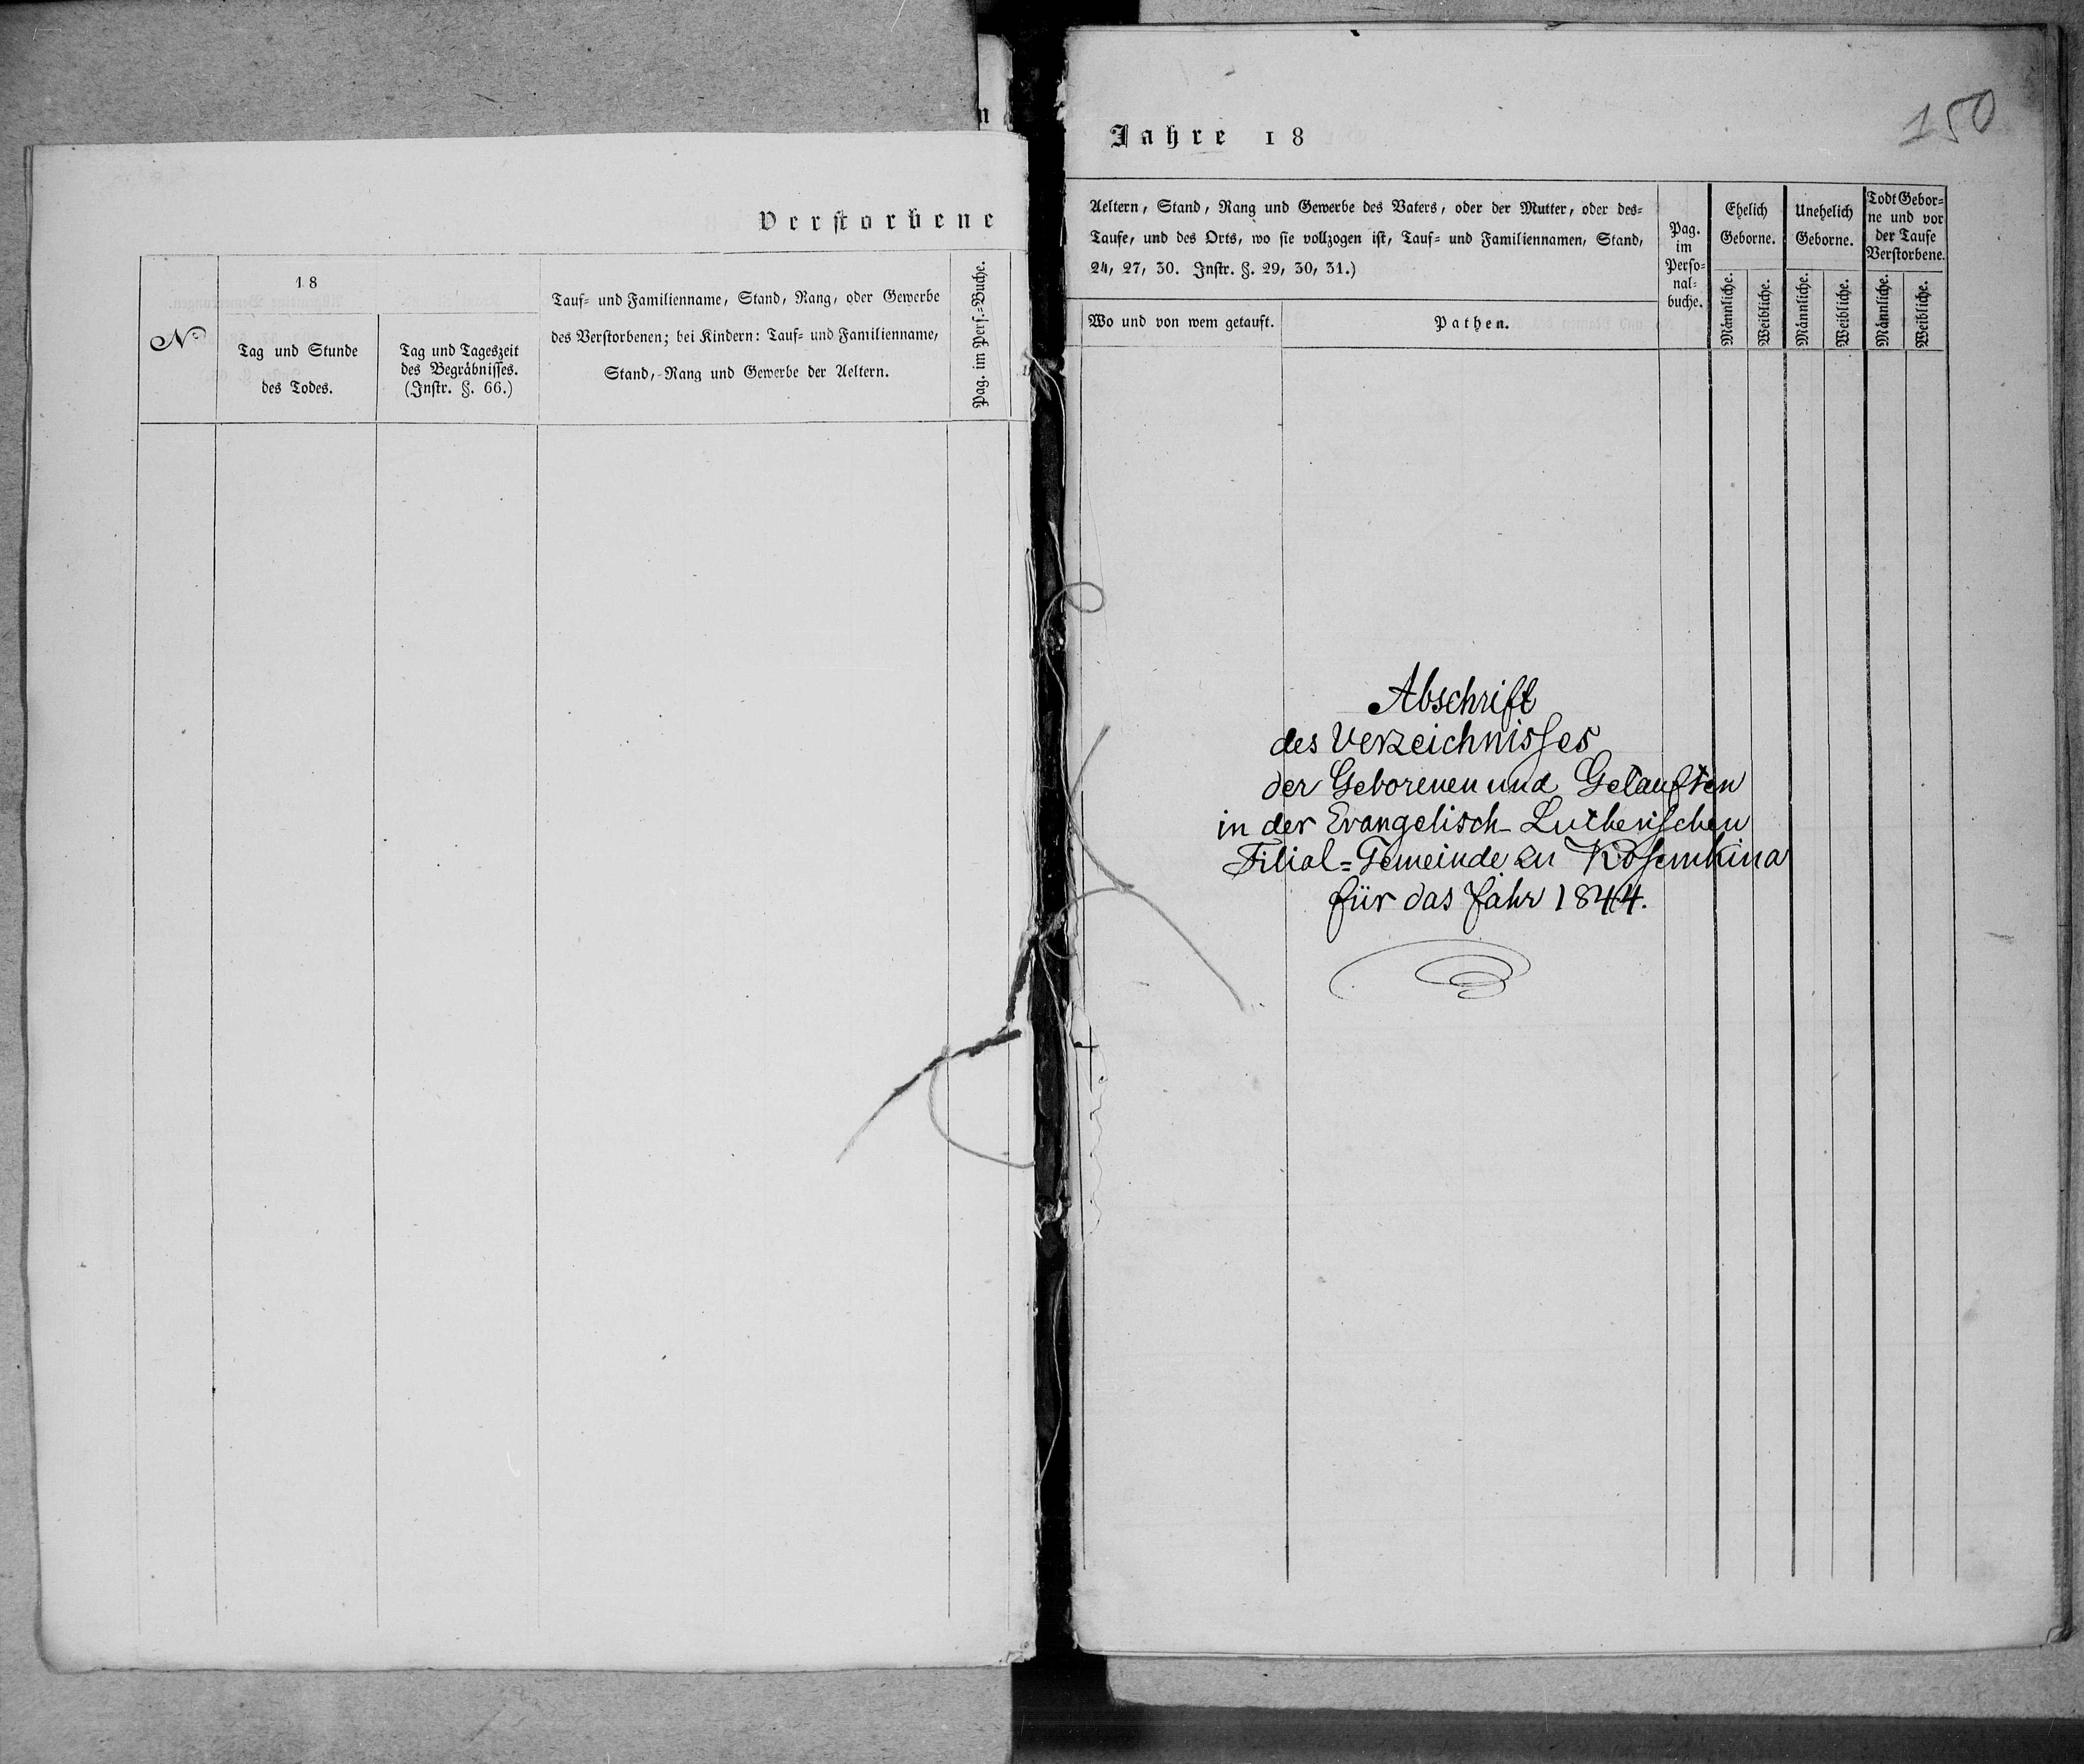 Verstorbene
№
18
Tag und Stunde
des Todes.
Tag und Tageszeit
des Begräbnisses.
(Instr. §. 66.)
Tauf- und Familienname, Stand, Rang, oder Gewerbe
des Verstorbenen; bei Kindern: Tauf- und Familienname,
Stand, Rang und Gewerbe der Aeltern.
Pag. im Pers.-Buche.
150
Jahre 18
Aeltern, Stand, Rang und Gewerbe des Vaters, oder der Mutter, oder des-
Taufe, und des Orts, wo sie vollzogen ist, Tauf- und Familiennamen, Stand,
24, 27, 30. Instr. §. 29, 30, 31.)
Wo und von wem getauft.
Pathen.
Pag.
im
Perso-
nal-
buche.
Ehelich
Geborne.
Männliche.
Weibliche.
Unehelich
Geborne.
Männliche.
Weibliche.
Todt Gebor-
ne und vor
der Taufe
Verstorbene.
Männliche.
Weibliche.
Abschrift
des Verzeichnisses
der Geborenen und Getauften
in der Evangelisch Lutherischen
Filial-Gemeinde zu
für das Jahr 1844.